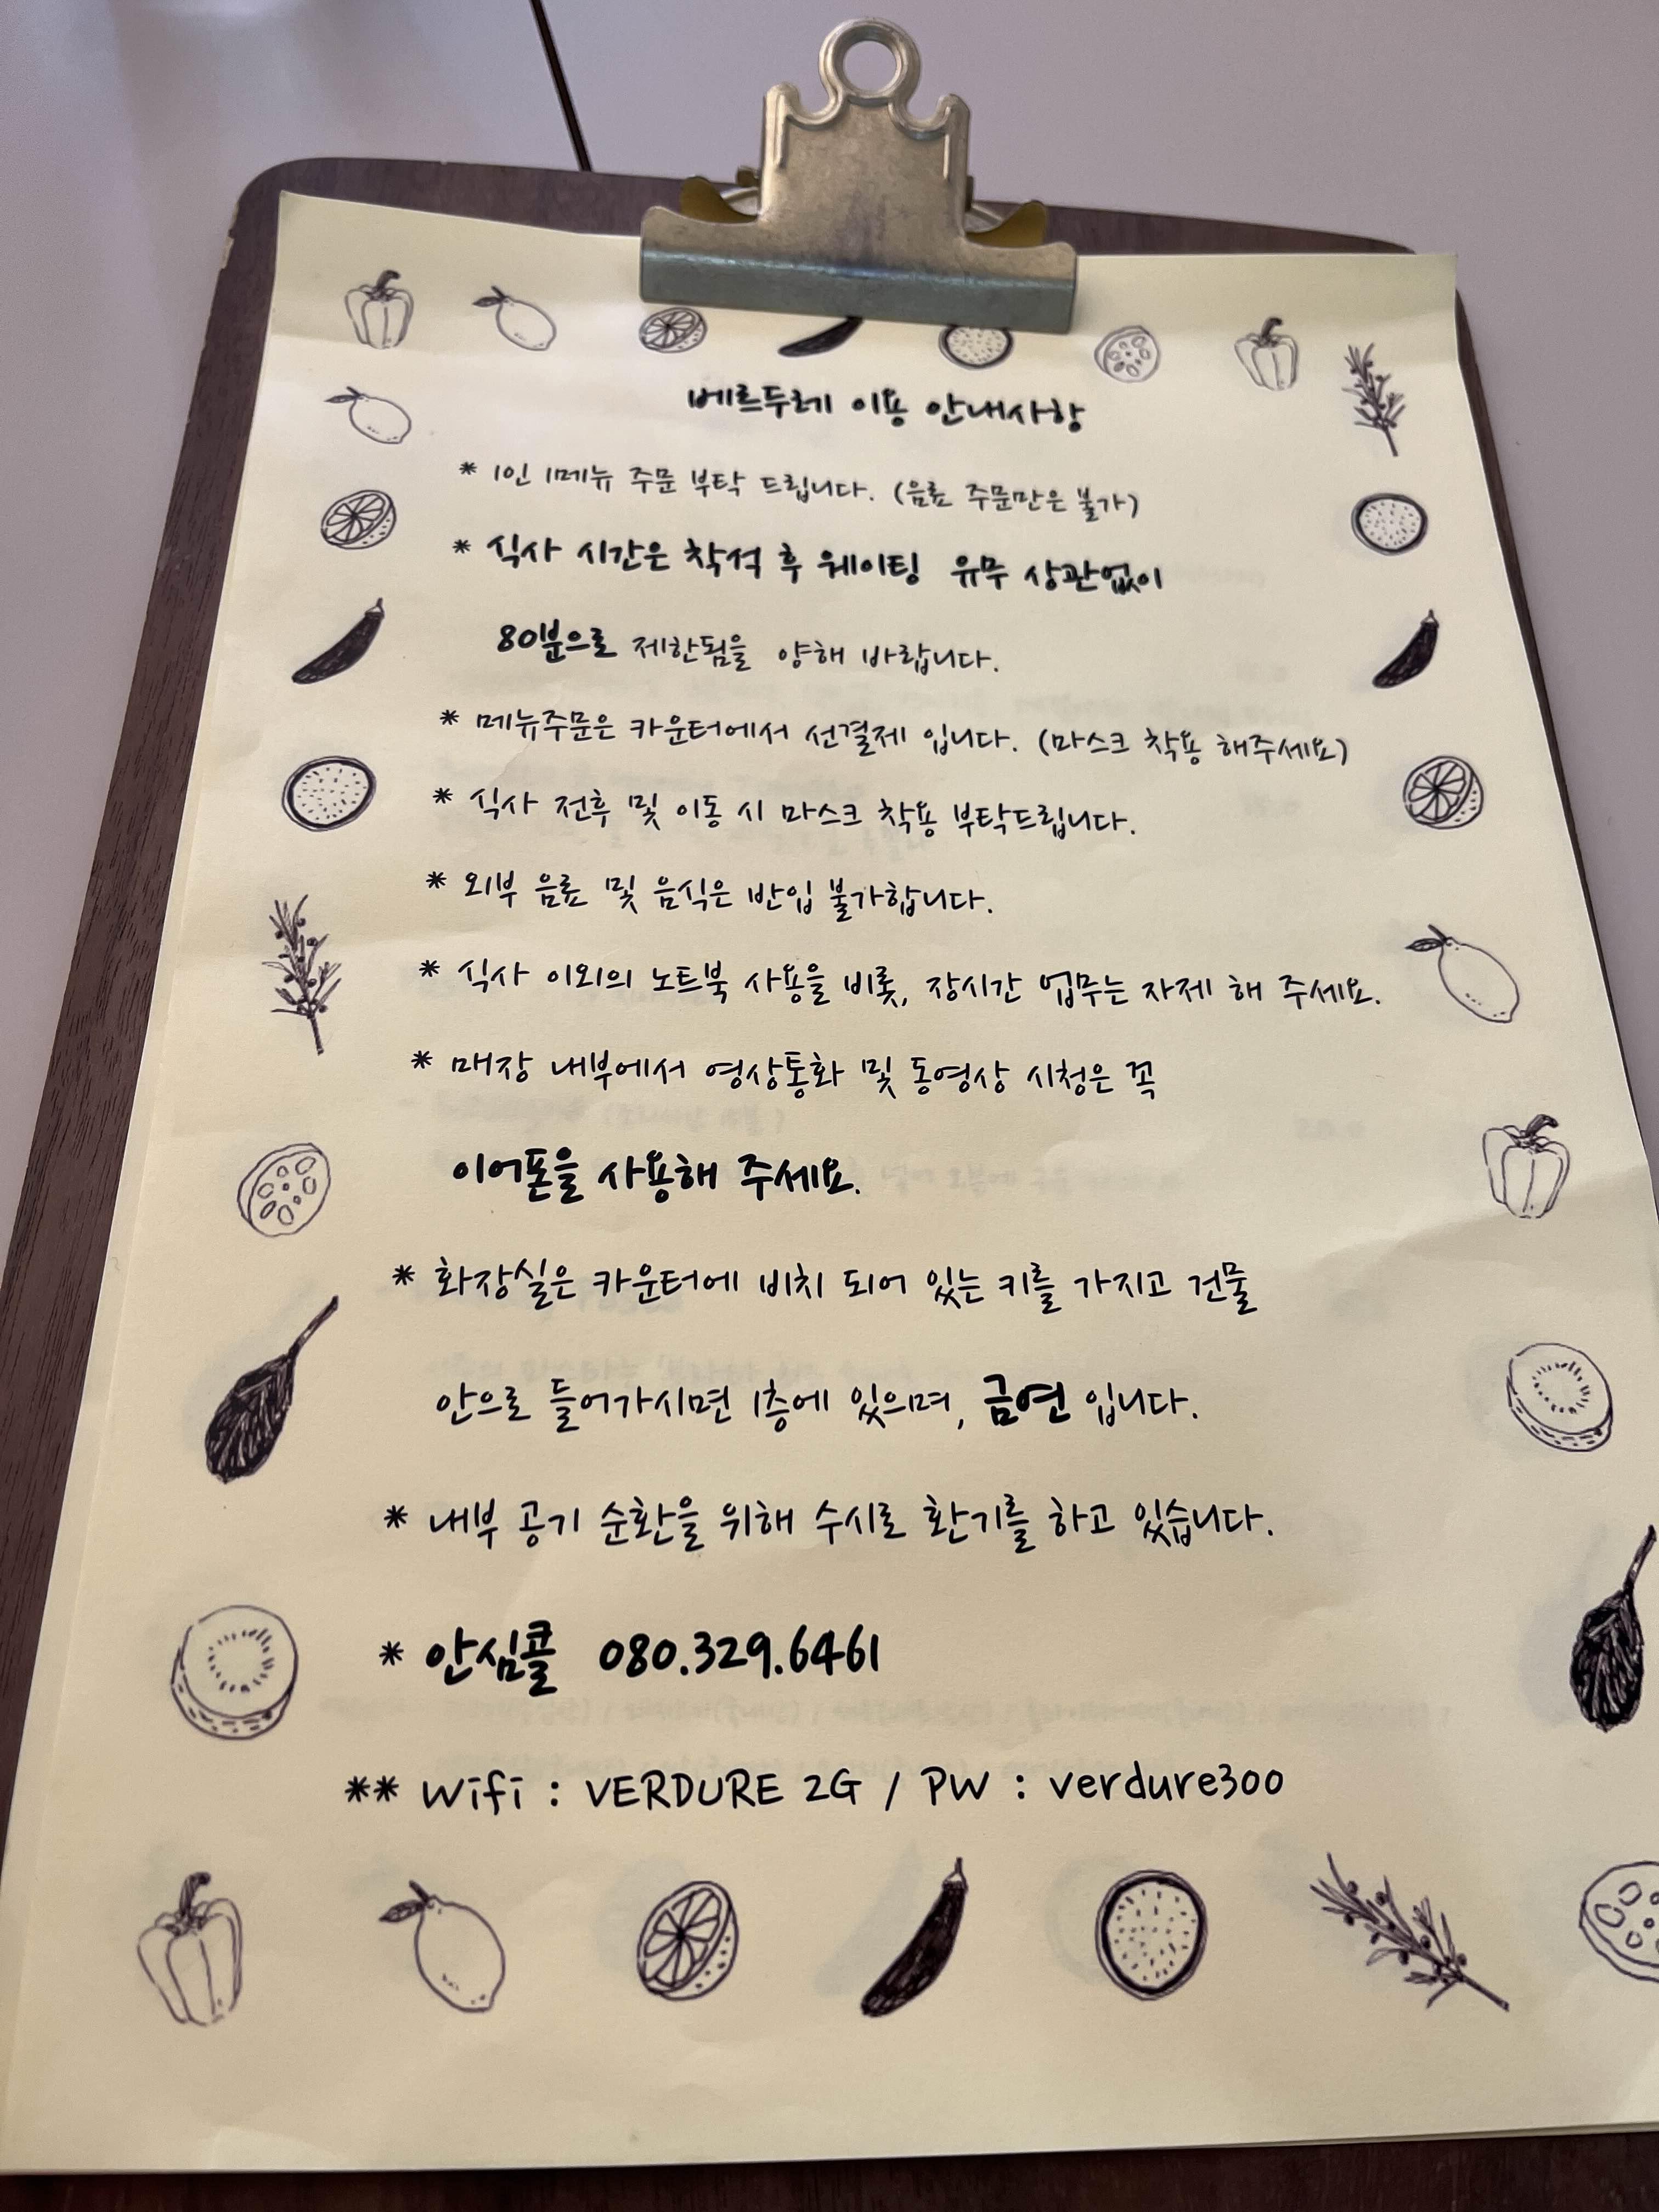 베르두레 이용 안내사항
* 1인 1메뉴 주문 부탁 드립니다. (음료 주문만은 불가)
* 식사 시간은 착석 후 웨이팅 유무 상관없이
80분으로 제한됨을 양해 바랍니다.
* 메뉴주문은 카운터에서 선결제 입니다. (마스크 착용 해주세요)
* 식사 전후 및 이동 시 마스크 착용 부탁드립니다.
* 외부 음료 및 음식은 반입 불가합니다.
* 식사 이외의 노트북 사용을 비롯, 장시간 업무는 자제 해 주세요.
* 매장 내부에서 영상통화 및 동영상 시청은 꼭
이어폰을 사용해 주세요.
* 화장실은 카운터에 비치 되어 있는 키를 가지고 건물
안으로 들어가시면 1층에 있으며, 금연 입니다.
* 내부 공기 순환을 위해 수시로 환기를 하고 있습니다.
* 안심콜 080.329.6461
** Wifi : VERDURE 2G / PW : verdure300